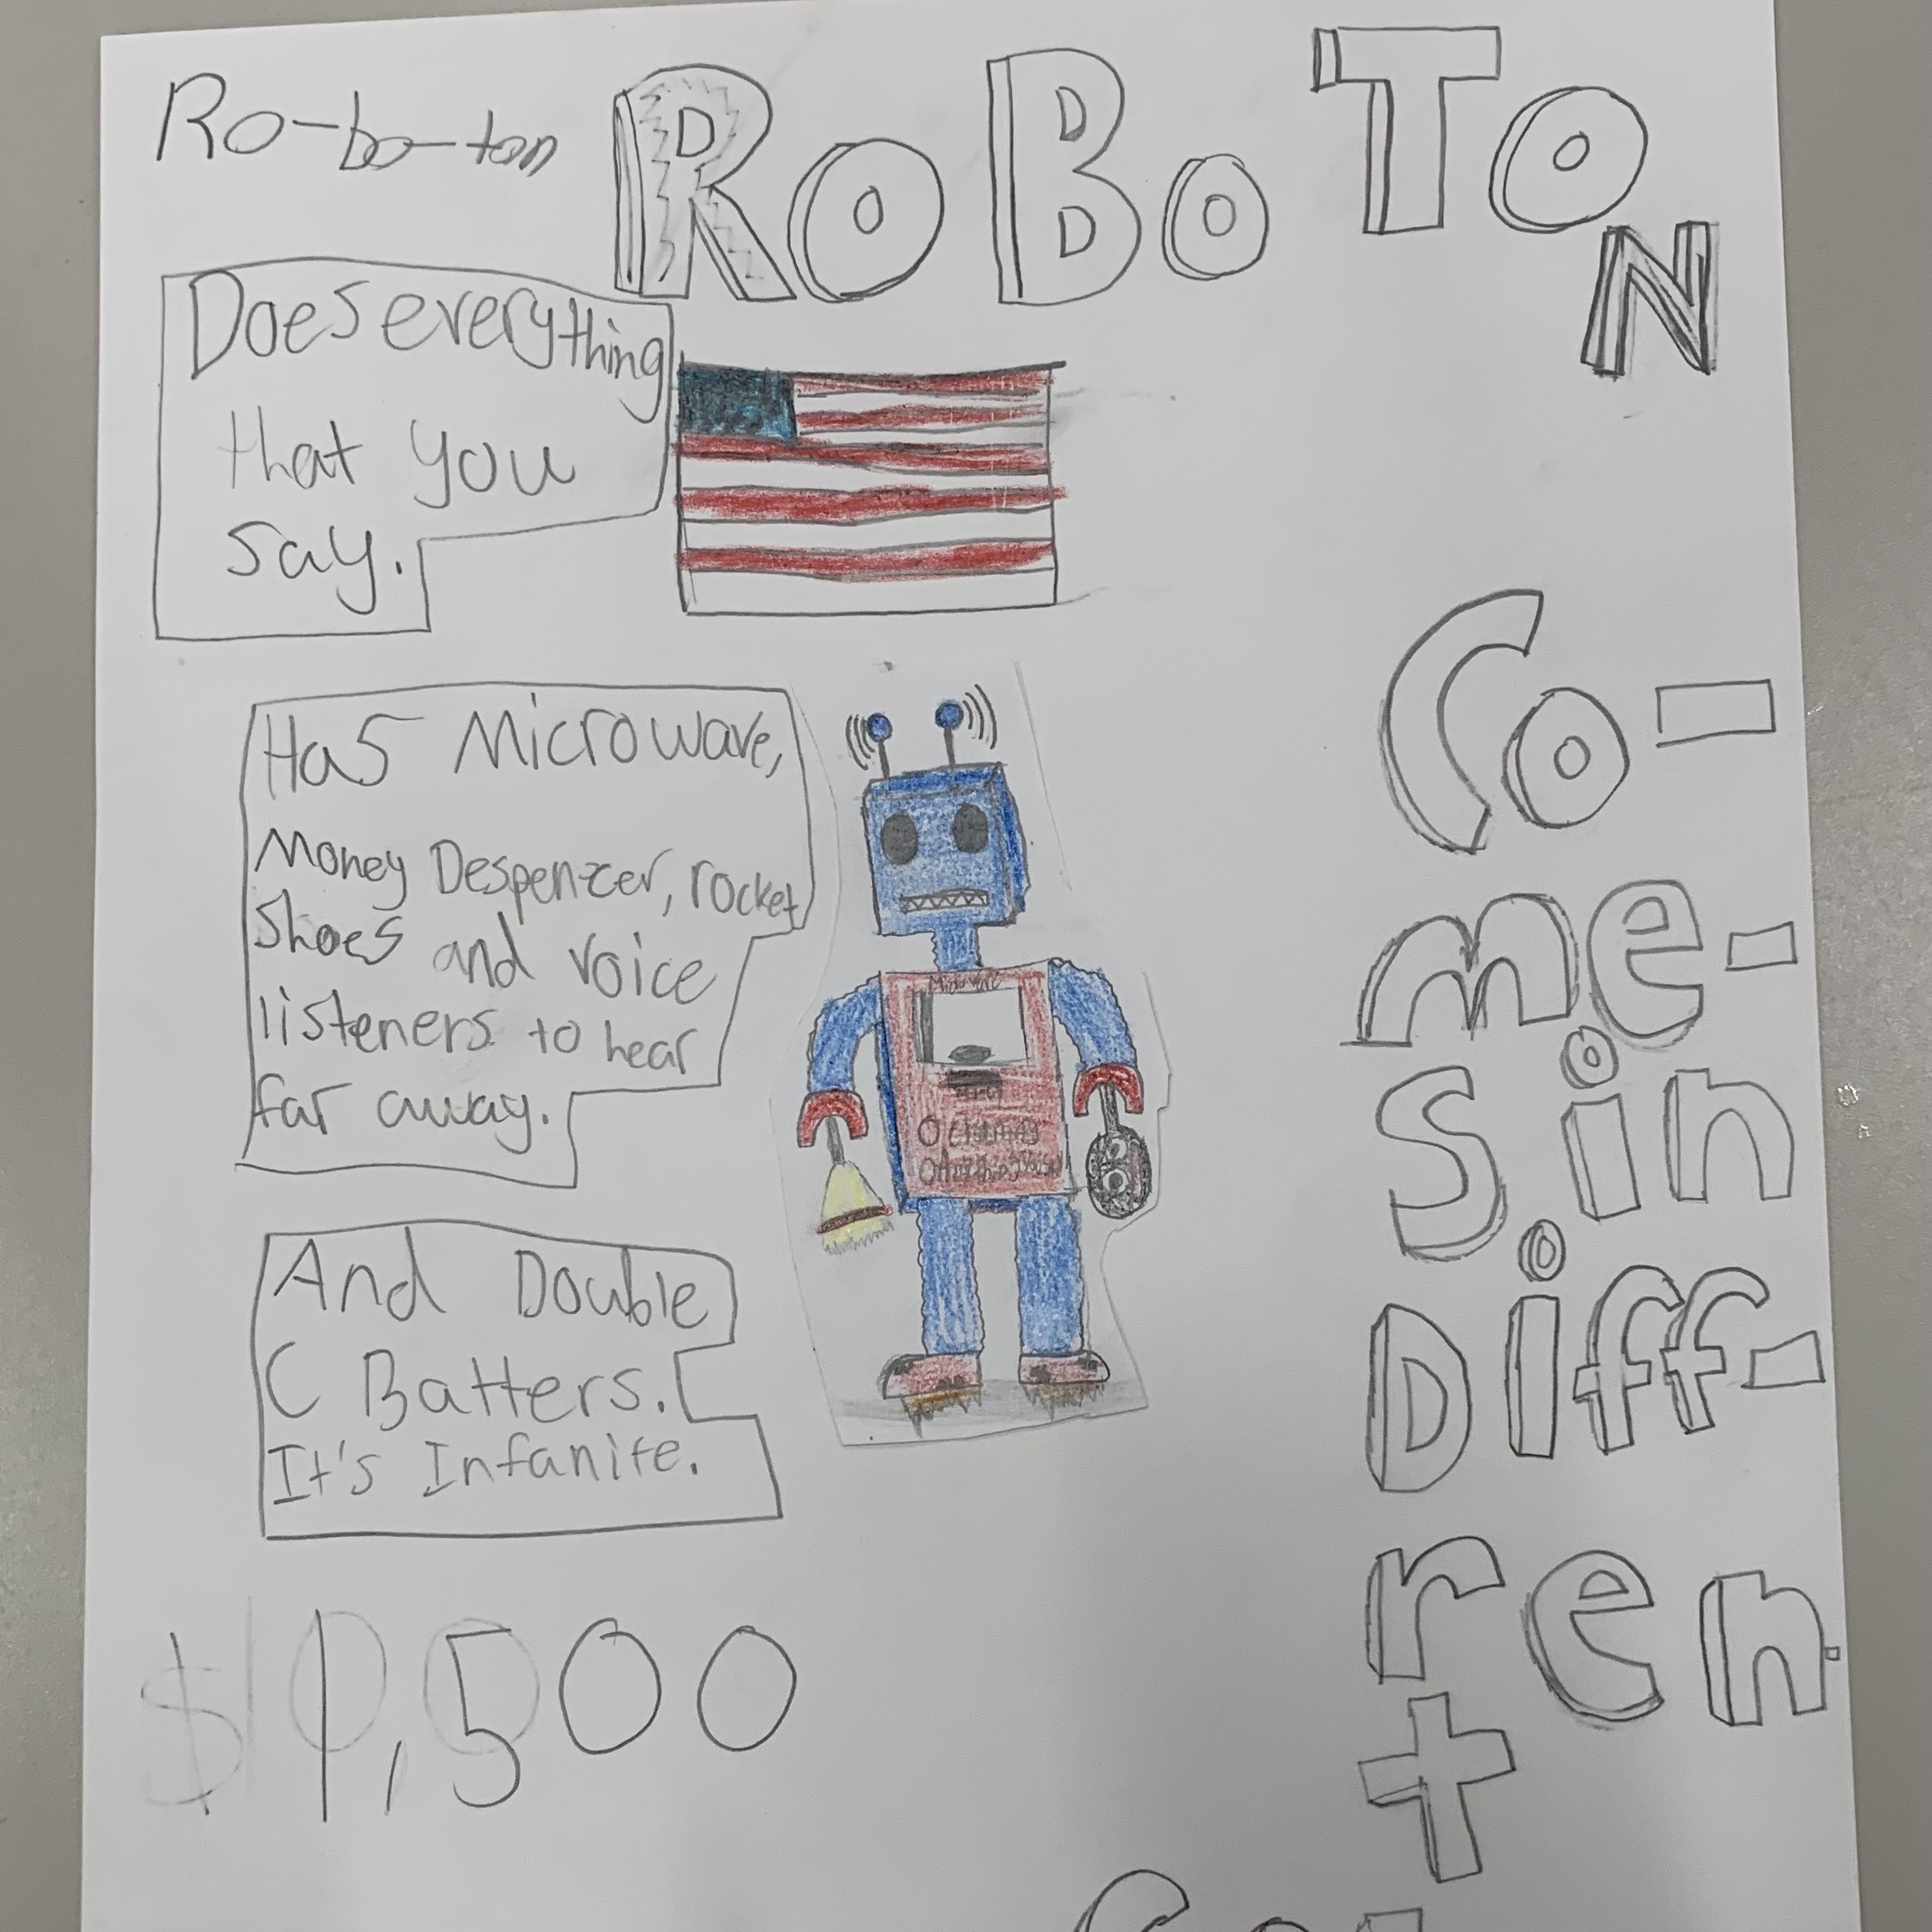 Ro-bo-ton
RoBoToN
Does everything
that you
say.
Has Microwave,
Money Despenzer, rocket
shoes and voice
listeners to hear
far away.
Microwave
And Double
C Batters.
It's Infanite.
$1,500
Co-
me-
s in
Diff-
ren
t